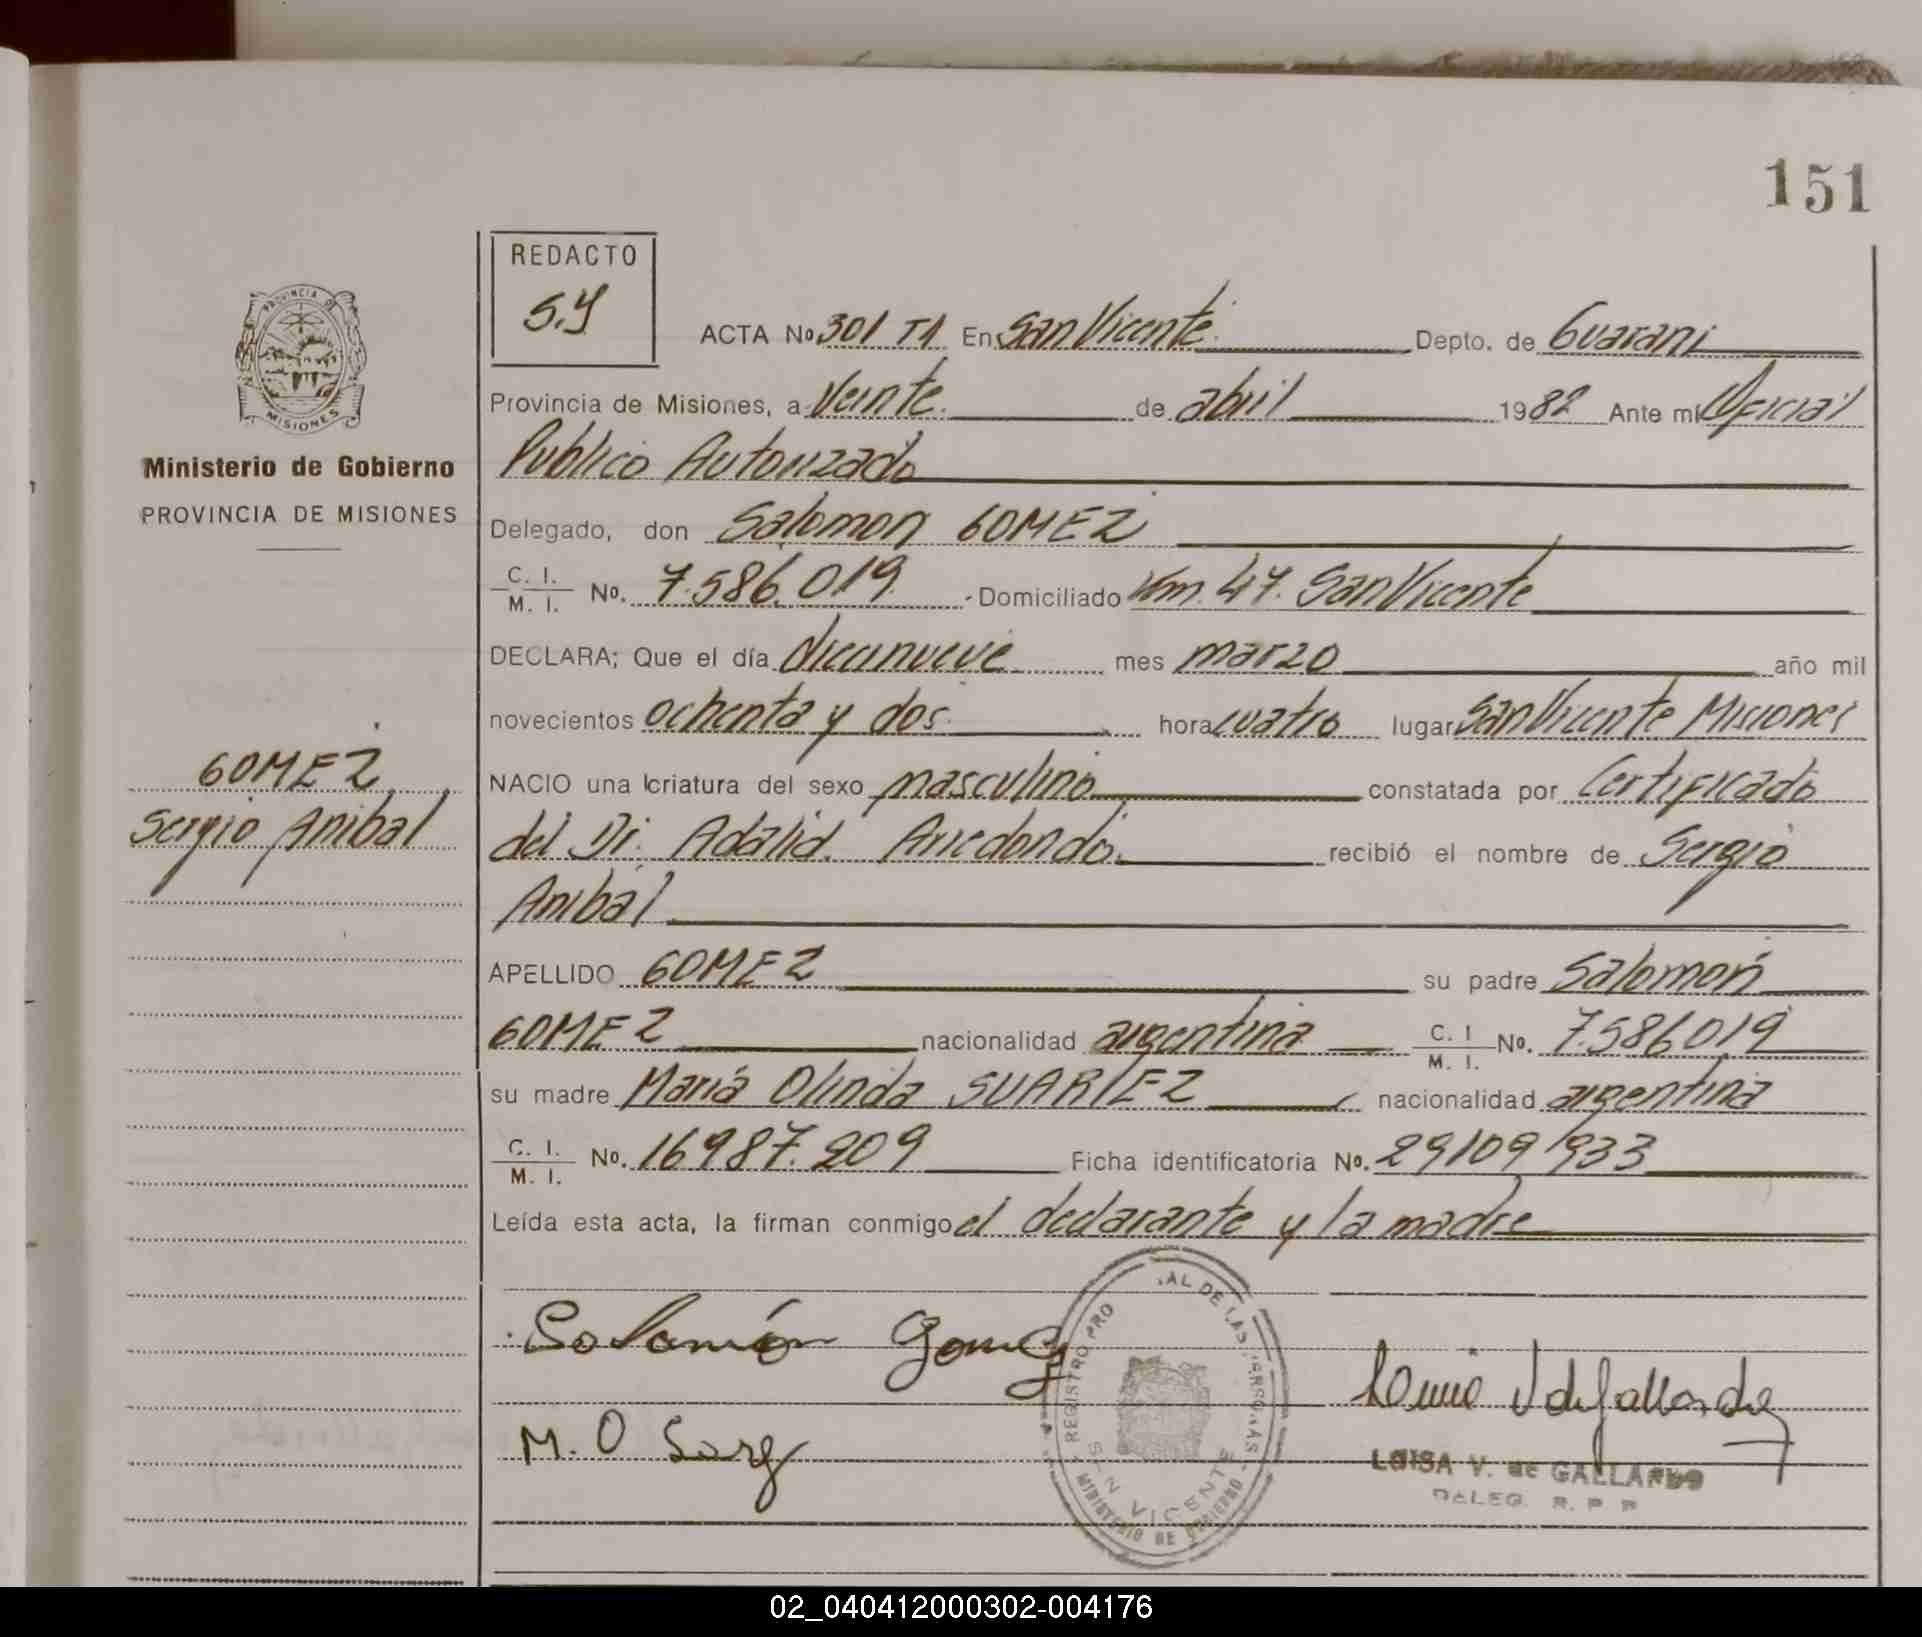 151
REDACTO
S.Y
PROVINCIA DE
MISIONES
Ministerio de Gobierno
PROVINCIA DE MISIONES
ACTA No 301 T1 En San Vicente Depto. de Guarani
Provincia de Misiones, a Veinte de abril 1982 Ante mi Oficial
Publico Autorizado
Delegado, don Salomon GOMEZ
C. I. / M. I. No. 7.586.019 - Domiciliado Km. 47. San Vicente
DECLARA; Que el día diecinueve mes marzo año mil
novecientos ochenta y dos hora cuatro lugar San Vicente Misiones
GOMEZ
Sergio Anibal
NACIO una criatura del sexo masculino constatada por Certificado
del Dr. Adalid Arredondo. recibió el nombre de Sergio
Anibal
APELLIDO GOMEZ su padre Salomon
GOMEZ nacionalidad argentina C. I / M. I. No. 7.586019
su madre Maria Olinda SUAREZ nacionalidad argentina
C. I. / M. I. No. 16987.209 Ficha identificatoria No. 29109933
Leída esta acta, la firman conmigo el declarante y la madre
Salomón Gomez
REGISTRO PRO AL DE LAS PERSONAS
SAN VICENTE
MINISTERIO DE GOBIERNO
M. O
LUISA V. de GALLARDO
DELEG. R. P. P
02_040412000302-004176